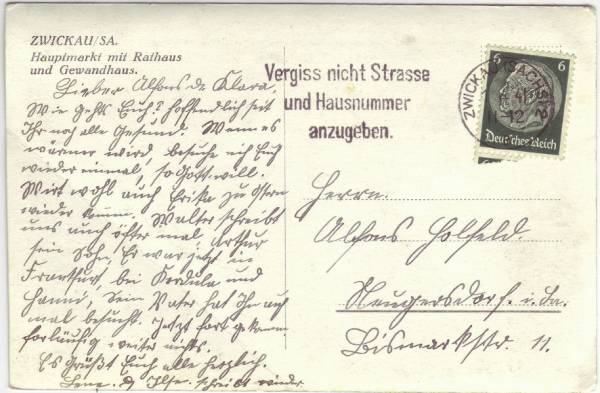 ZWICKAU/SA.
Hauptmarkt mit Rathaus
und Gewandhaus.
Lieber Alfons Klara.
Wie gehts Euch? hoffendlich seit
Ihr noch alle Gesund. Wenn es
wärmer wird, besuche ich Euch
wieder einmal, so Gott will.
Wirt wohl auch Erika zu Ostern
wieder komm. Walter schreibt
uns auch öfter mal, Arthur
sein Sohn, Er war jetzt in
Frankfurt, bei Kordula und
Hanni, Sein Vater hat Ihn auch
mal besucht. Jetzt fort
forläufig weiter nichts.
Es Grüßt Euch alle herzlich.
Lene Ilse. schreibt wieder
Vergiss nicht Strasse
und Hausnummer
anzugeben.
ZWICKAU (SACHS) 2
41
-12
6 6
Deutsches Reich
Herrn.
Alfons Holfeld.
Neugersdorf. i. Sa.
Bismarkstr. 11.